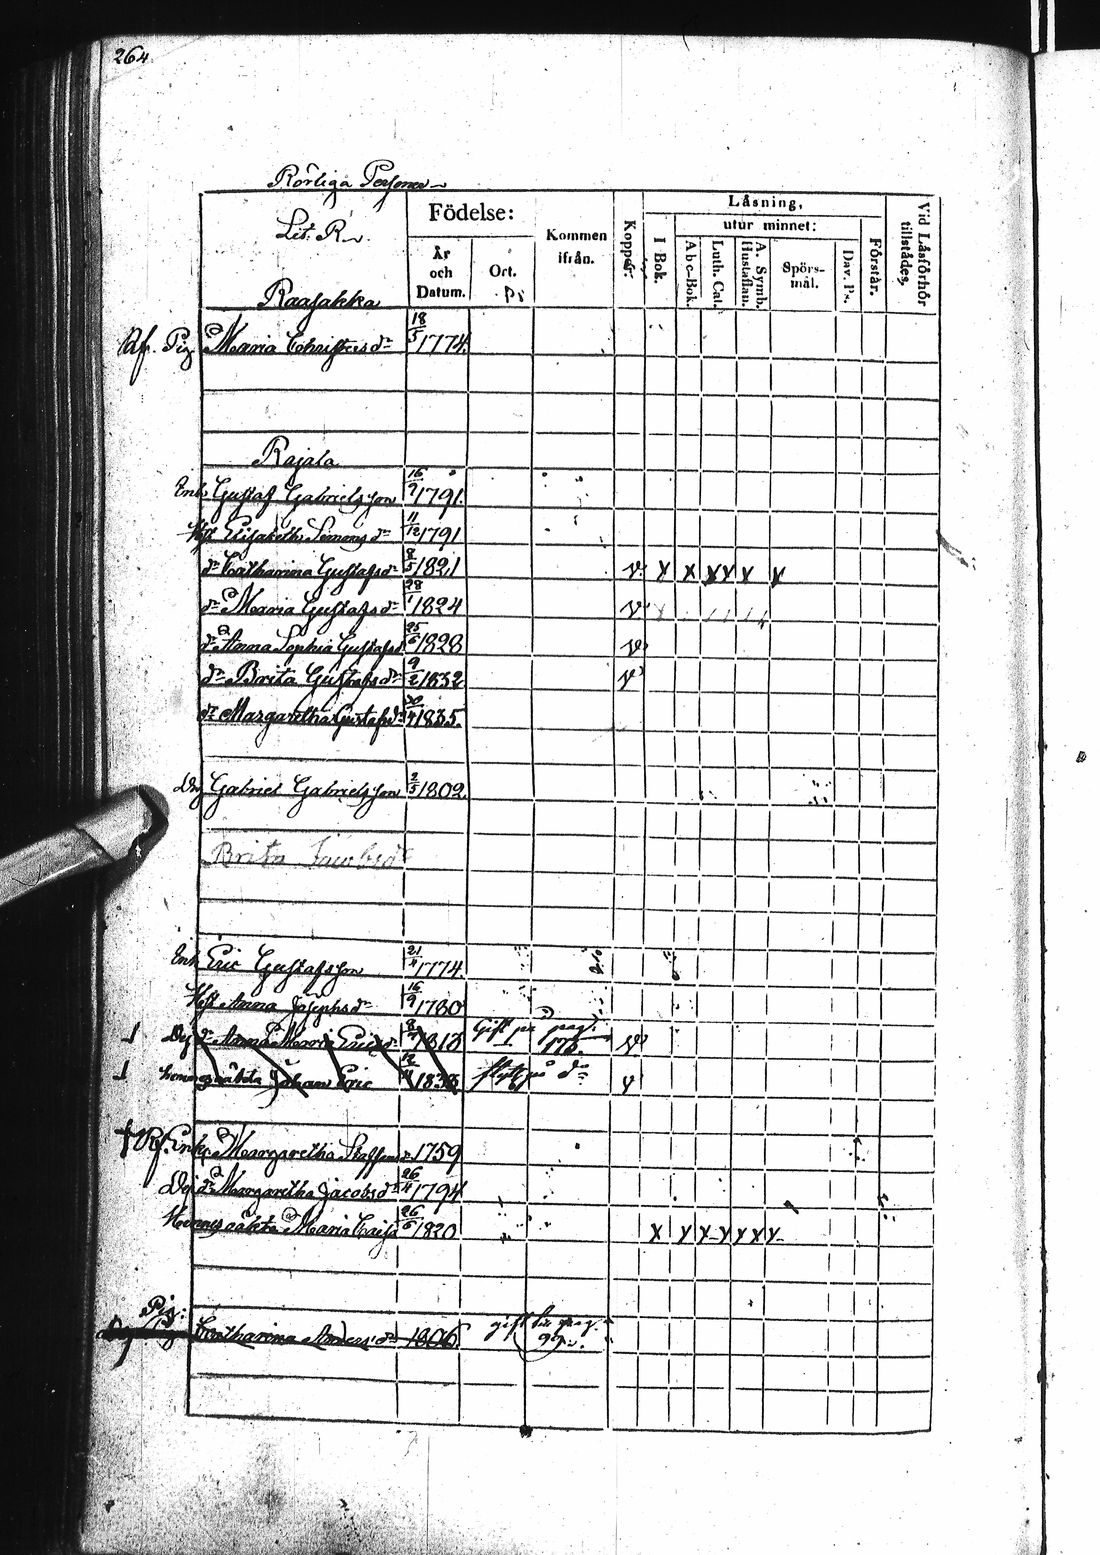 264
Rörliga Personer
Lit. R
Födelse:
År och Datum.
Ort.
Kommen ifrån.
Koppor.
Läsning,
I Bok.
utur minnet:
Abc-Bok.
Luth. Cat.
A. Symb. Hustaflan.
Spörs-mål.
Dav. Ps.
Förstår.
Vid Läsförhör tillstädes,
Raajakka
Pig. Maria Christersdr 18/5 1774.
Rajala
Enk. Gustaf Gabrielsson 16/9 1791.
Hst Elisabeth Simonsdr 11/12 1791
dr Catharina Gustafsdr 8/5 1821 v. x x x x x x
dr Maria Gustafsdr 28/1 1824 v
dr Anna Sophia Gustafsd 25/6 1828 v
dr Brita Gustafsdr 9/2 1832 v
dr Margaretha Gustafsdr 1835.
Gabriel Gabrielsson 2/5 1802.
Brita Jacobsdr
Enk Eric Gustafsson 21/11 1774.
Hst Anna Josephsdr 16/9 1780
dr Anna Maria Ericsdr 1813 Gift på pag. 173. v
Johan Eric 1838 flytt på do v
† Enk. Margaretha Staffansdr 1759
dr Margaretha Jacobsdr 26/11 1794
Maria 26/6 1820 x x x x x x x
Pig: Catharina Andersdr 1806. gift